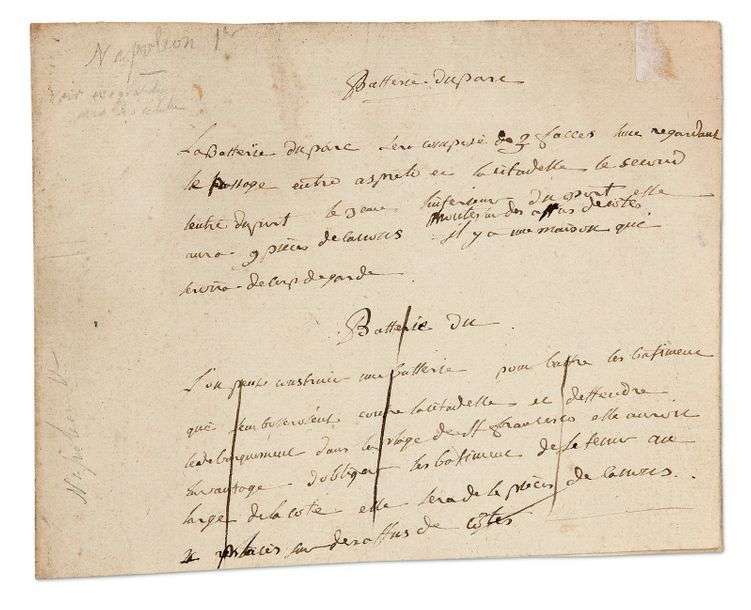 Napoleon 1er
Batterie du parc
La Batterie du parc sera composé de 3 facces l'une regardant
le passage entre aspreto et la citadelle le second
lentré du port le 3eme linferieur du port elle
aura 9 pièces de canons montés sur des affus de cotes
il y a une maison qui
servira de corp de garde
Batterie du
L'on peut construire une batterie pour battre les batiment
qui contre la citadelle et deffendre
le debarquement dans la plage de St francesco elle auroit
lavantage d'obliger les batiment de se tenir au
large de la cote elle sera de pièces de canons
placés sur des affus de côtes